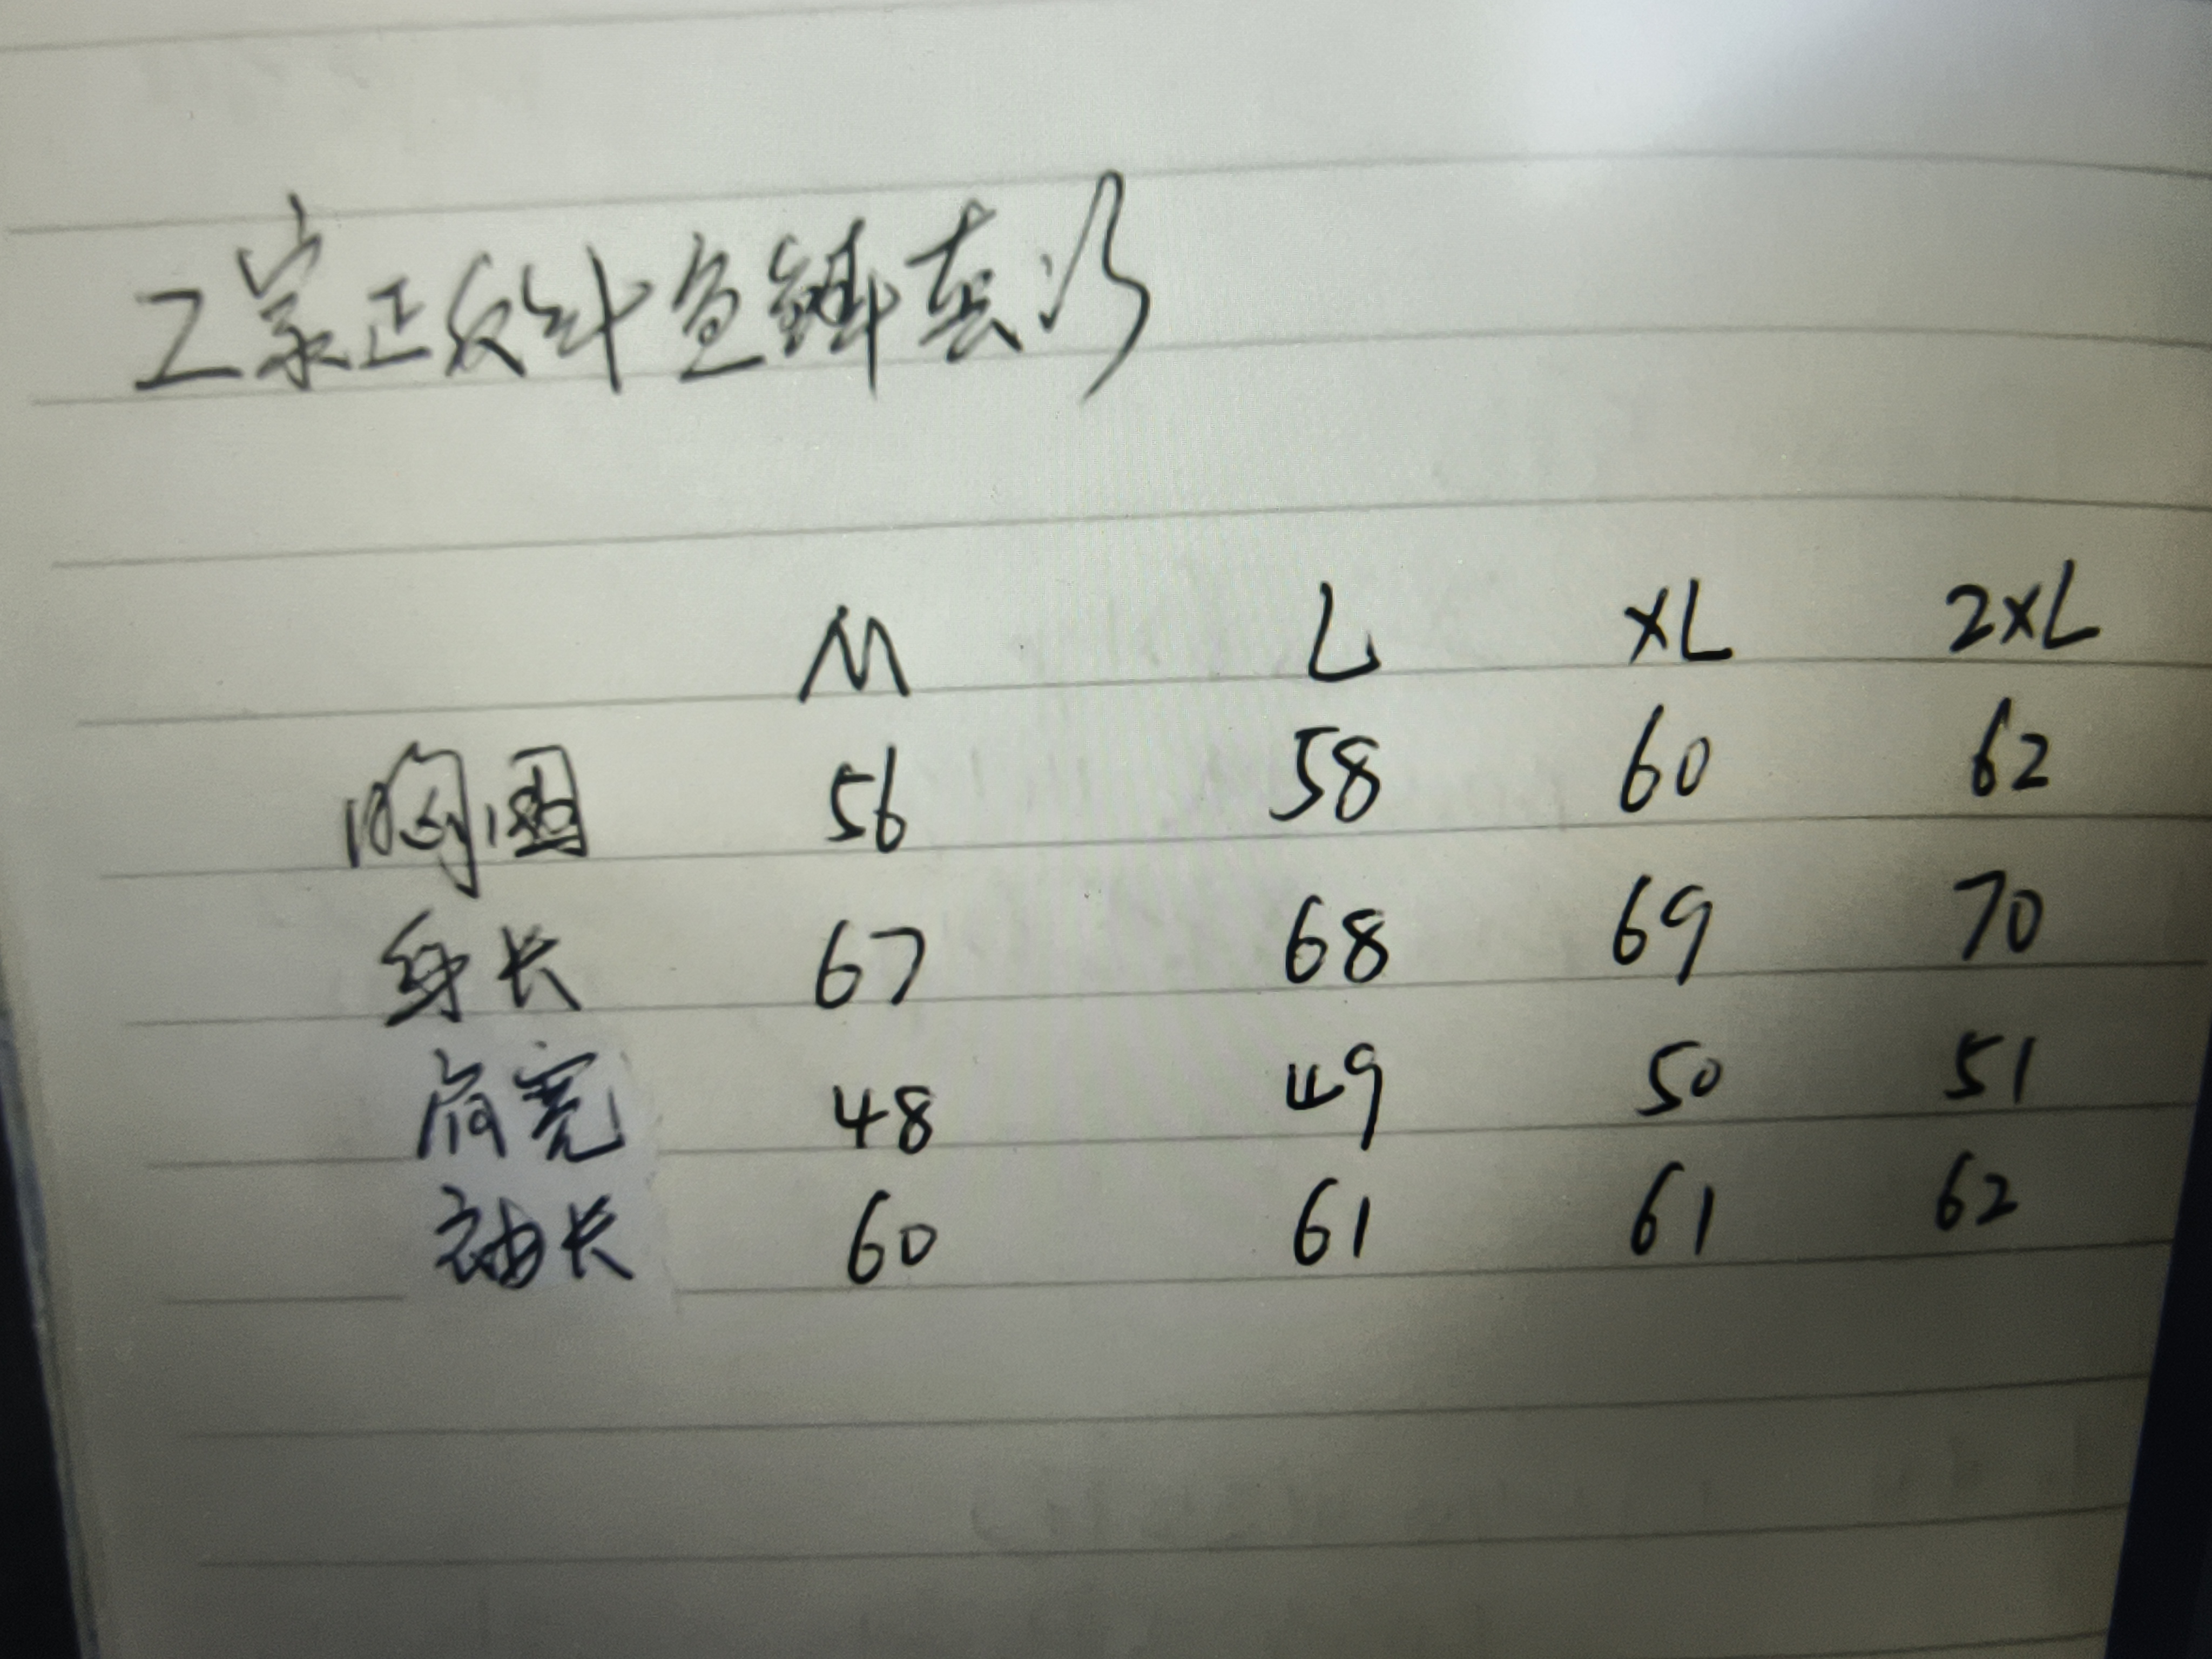 工家正反针鱼鳞套衫
M L XL 2XL
胸围 56 58 60 62
身长 67 68 69 70
肩宽 48 49 50 51
袖长 60 61 61 62